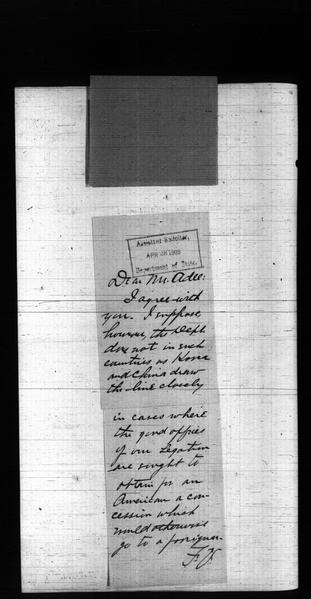 Assistant Solicitor,
APR 28 1903
Department of State.
Dear Mr. Adee:
I agree with
you. I suppose,
however, the Dept
does not in such
countries as Korea
and China draw
the line closely
in cases where
the good offices
of our Legation
are sought to
obtain for an
American a con-
cession which
would otherwise
go to a foreigner.